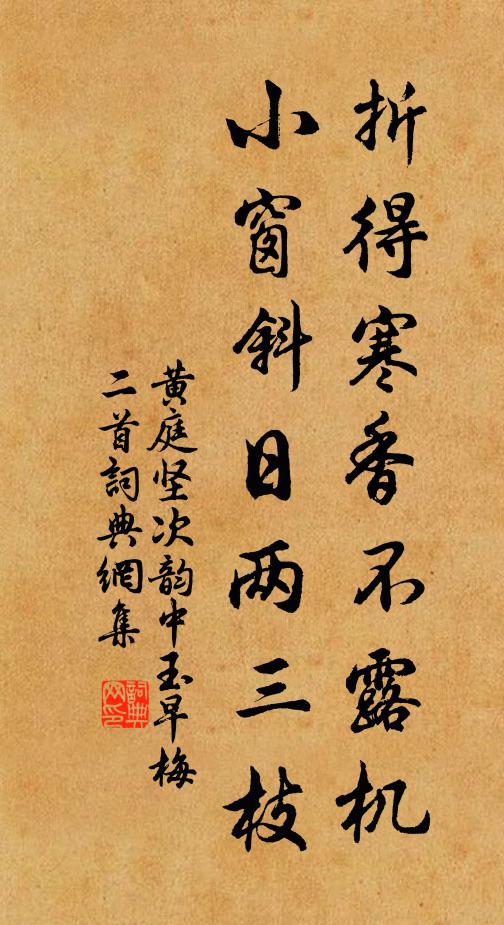 折得寒香不露机
小窗斜日两三枝
黄庭坚次韵中玉早梅
二首詞典網集
詞典
网印